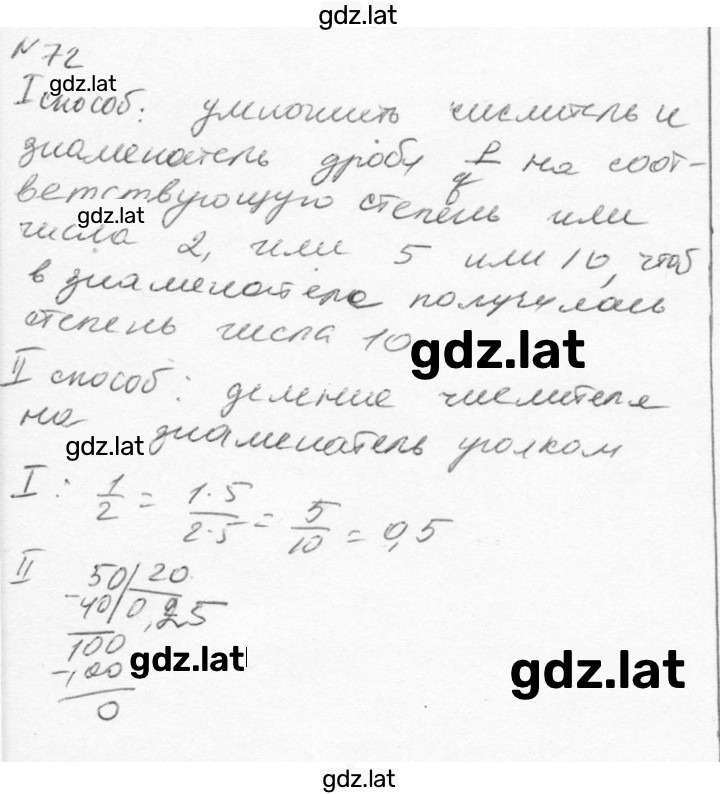 gdz.lat
N 72
gdz.lat
I способ: умножить числитель и
знаменатель дроби p/q на соот-
ветствующую степень или
gdz.lat
числа 2, или 5 или 10, чтоб
в знаменателе получилась
степень числа 10
gdz.lat
II способ: деление числителя
на знаменатель уголком
gdz.lat
I: 1/2 = 1·5/2·5 = 5/10 = 0,5
II 50 | 20
-40 | 0,25
100
-100
gdz.lat
gdz.lat
0
gdz.lat